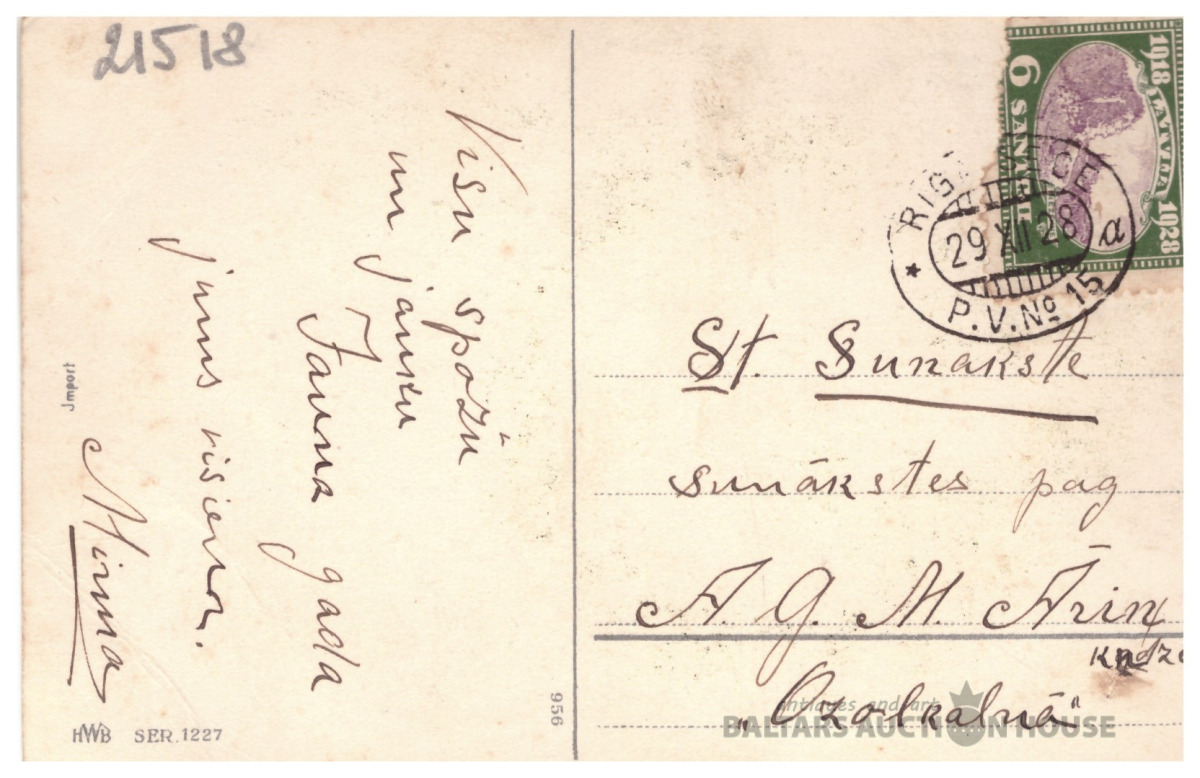 21518
Visu spožu
un jauku
Jauna gada
jums visiem.
Minna
Jmport
HWB SER. 1227
956
1918 LATVIJA 1928
6 SANTIMI
RIGA
29 XII 28
a
* P.V.Nº 15
St. Sunakste
sunākstes pag
A. G. M. Ārin
kndze
„Ozolkalnā"
antiques and art
BALTARS AUCTION HOUSE